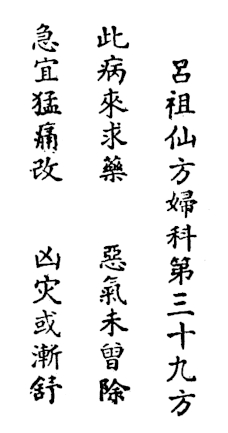 呂祖仙方婦科第三十九方
此病來求藥　惡氣未曾除
急宜猛痛改　凶灾或漸舒